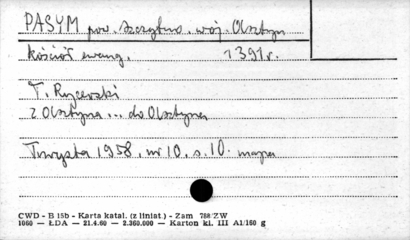 PASYM pow. Szczytno. woj. Olsztyn
Kościół ewang. 1391 r.
T. Ryszewski
z Olsztyna ... do Olsztyna
Turysta 1958. nr 10. s. 10. mapa
CWD - B 15b - Karta katal. (z liniat.) - Zam 788/ZW
1960 — ŁDA — 21.4.60 — 2.360.000 — Karton kl. III A1/160 g